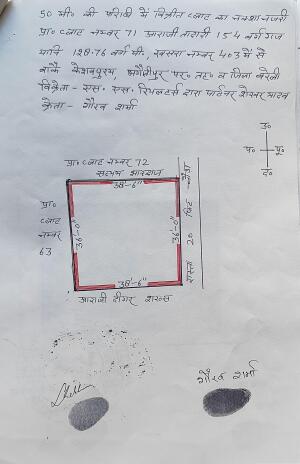 50 मी० की परिधी में विक्रीत प्लाट का नक्शा नजरी
प्रा० प्लाट नम्बर 71 आराजी तादादी 154 वर्ग गज
यानि 128.76 वर्ग मी०, खसरा नम्बर 403 में से
वाके केशवपुरम, पर० तह० व जिला बरेली
विक्रेता - एस. एस. द्वारा पार्टनर
क्रेता - गौरव शर्मा
उ०
प० पू०
द०
प्रा० प्लाट नम्बर 72
38'-6"
प्रा०
प्लाट
नम्बर
63
36'-0"
36'-0"
रास्ता 20 फिट
38'-6"
आराजी दीगर शख्स
गौरव शर्मा